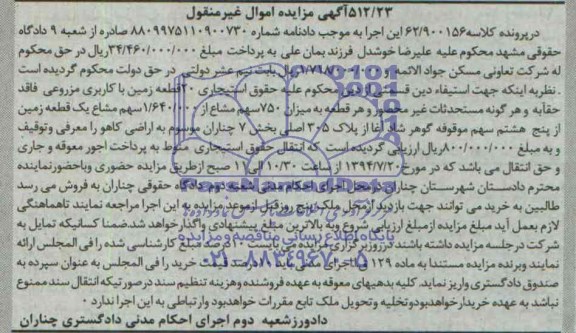 ۵۱۲/۲۳آگهی مزایده اموال غیرمنقول
درپرونده کلاسه۶۲/۹۰۰۱۵۶ این اجرا به موجب دادنامه شماره ۸۸۰۹۹۷۵۱۱۰۹۰۰۷۳۰ صادره از شعبه ۹ دادگاه
حقوقی مشهد محکوم علیه علیرضا خوشدل فرزند یمان علی به پرداخت مبلغ ۳۴/۴۶۰/۰۰۰/۰۰۰ریال در حق محکوم
له شرکت تعاونی مسکن جواد الائمه و مبلغ ریال بابت نیم عشر دولتی در حق دولت محکوم گردیده است
. نظربه اینکه جهت استیفاء دین محکوم علیه حقوق استیجاری ۲۰قطعه زمین با کاربری مزروعی فاقد
حقابه و هر گونه مستحدثات غیر محصور و هر قطعه به میزان ۷۵۰سهم مشاع از ۱/۶۴۰/۰۰۰سهم مشاع یک قطعه زمین
از پنج هشتم سهم موقوفه گوهر شاد آغا از پلاک ۳۰۵ اصلی بخش ۷ چناران موسوم به اراضی کاهو را معرفی وتوقیف
و به مبلغ ۸۰۰/۰۰۰/۰۰۰ریال ارزیابی گردیده است که انتقال حقوق استیجاری منوط به پرداخت اجور معوقه و جاری
و حق انتقال می باشد که در مورخ۱۳۹۴/۷/۲۰ از ساعت ۱۰/۳۰ الی۱۱ صبح ازطریق مزایده حضوری وباحضورنماینده
محترم دادستان شهرستان چناران درمحل اجرای احکام مدنی شعبه دوم دادگاه حقوقی چناران به فروش می رسد
طالبین به خرید می توانند جهت بازدیدازمحل ملک پنج روزقبل ازموعدمزایده به این اجرا مراجعه نمایند تاهماهنگی
لازم بعمل آید مبلغ مزایده ازمبلغ ارزیابی شروع وبه بالاترین مبلغ پیشنهادی واگذارخواهد شدضمنا کسانیکه تمایل به
شرکت درجلسه مزایده داشته باشند درروزبرگزاری مزایده می بایست ۱۰ درصد مبلغ کارشناسی شده را فی المجلس ارائه
نمایند وبرنده مزایده مستندا به ماده ۱۲۹ اجرای مدنی باید ۱۰درصد قیمت خرید را فی المجلس به عنوان سپرده به
صندوق دادگستری واریز نماید. کلیه بدهیهای معوقه به عهده فروشنده وهزینه تنظیم سند درصورتیکه انتقال سند ممنوع
نباشد به عهده خریدارخواهدبودوتخلیه وتحویل ملک تابع مقررات خواهدبود وارتباطی به این اجرا ندارد.
دادورزشعبه دوم اجرای احکام مدنی دادگستری چناران
پایگاه اطلاع رسانی مناقصه و مزایده
۰۲۱-۸۸۳۴۹۶۷۰-۵